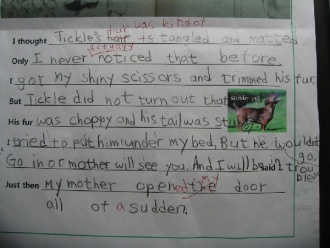 fur was kind of
I thought Tickle's is tangled and matted
actually
Only I never noticed that before.
I got my shiny scissors and trimmed his fur,
But Tickle did not turn out that
His fur was choppy and his tail was
I tried to put him under my bed, But he wouldn't go.
Go in or mother will see you. And I will be in trouble. said I
my
Just then my mother opened the door
all of a sudden.